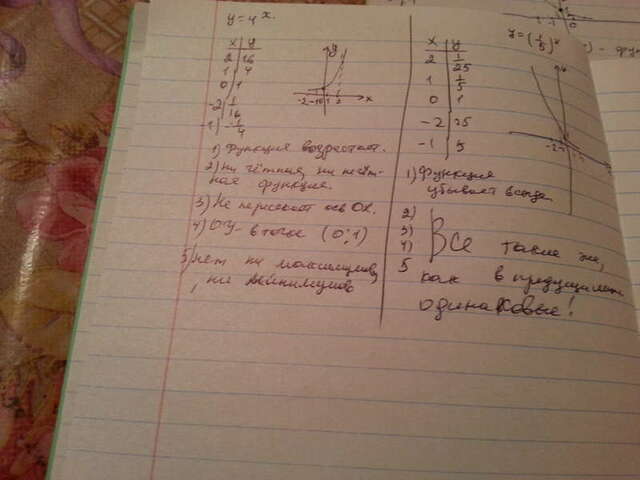 y=4^x.
x | y
2 | 16
1 | 4
0 | 1
-2 | 1/16
-1 | 1/4
y
-2 -1 0 1 2 x
1) Функция возрастает.
2) ни чётная, ни нечёт-
ная функция.
3) Не пересекает ось OX.
4) OY - в точке (0;1)
5) нет ни максимумов,
, ни минимумов
y=(1/5)^x
x | y
2 | 1/25
1 | 1/5
0 | 1
-2 | 25
-1 | 5
1) Функция
убывает всегда.
2)
3)
4)
5
Все такие же,
как в предыдущем
одинаковые!